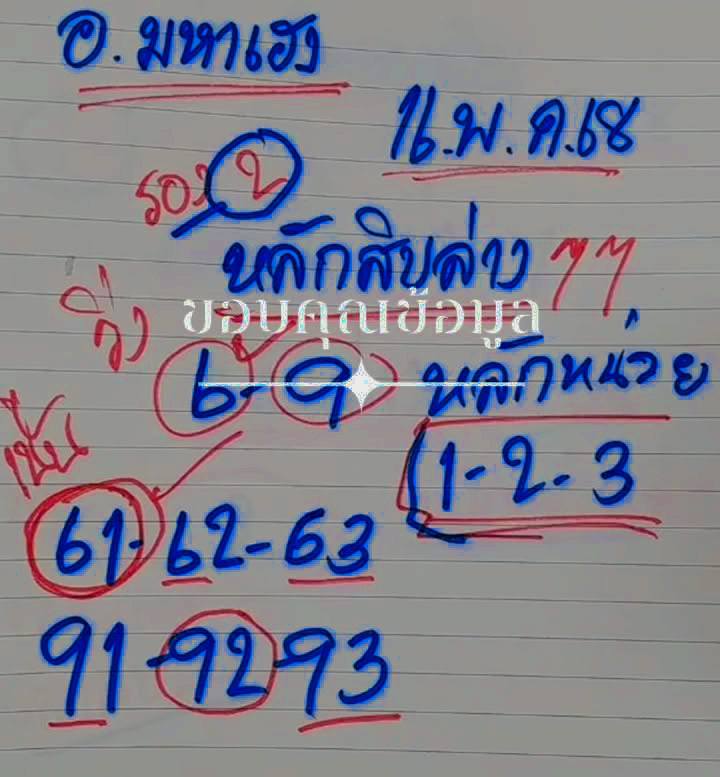 อ.มหาเฮง
1 พ.ค.68
รอง 2
หลักสิบล่าง
วิ่ง
ขอบคุณข้อมูล
6-9
หลักหน่วย
1-2-3
เน้น
61-62-63
91-92-93